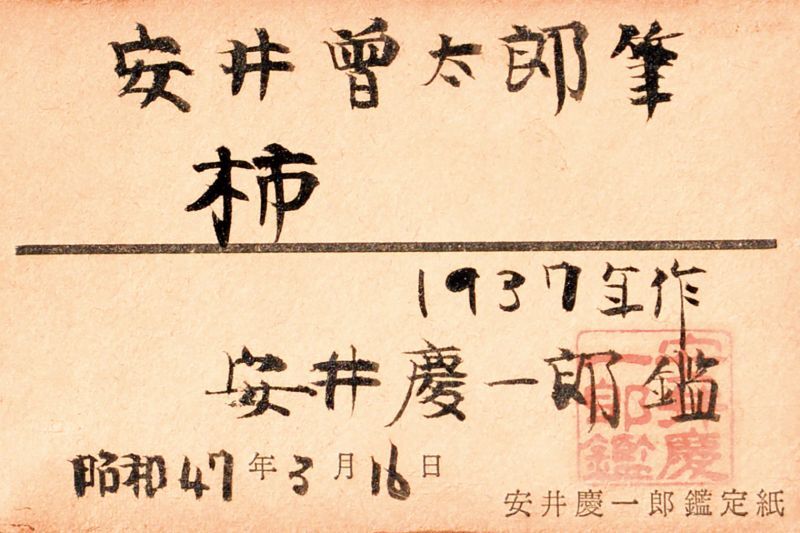 安井曾太郎筆
柿
1937年作
安井慶一郎鑑
昭和47年3月16日
安井慶一郎鑑定紙
安井慶一郎鑑